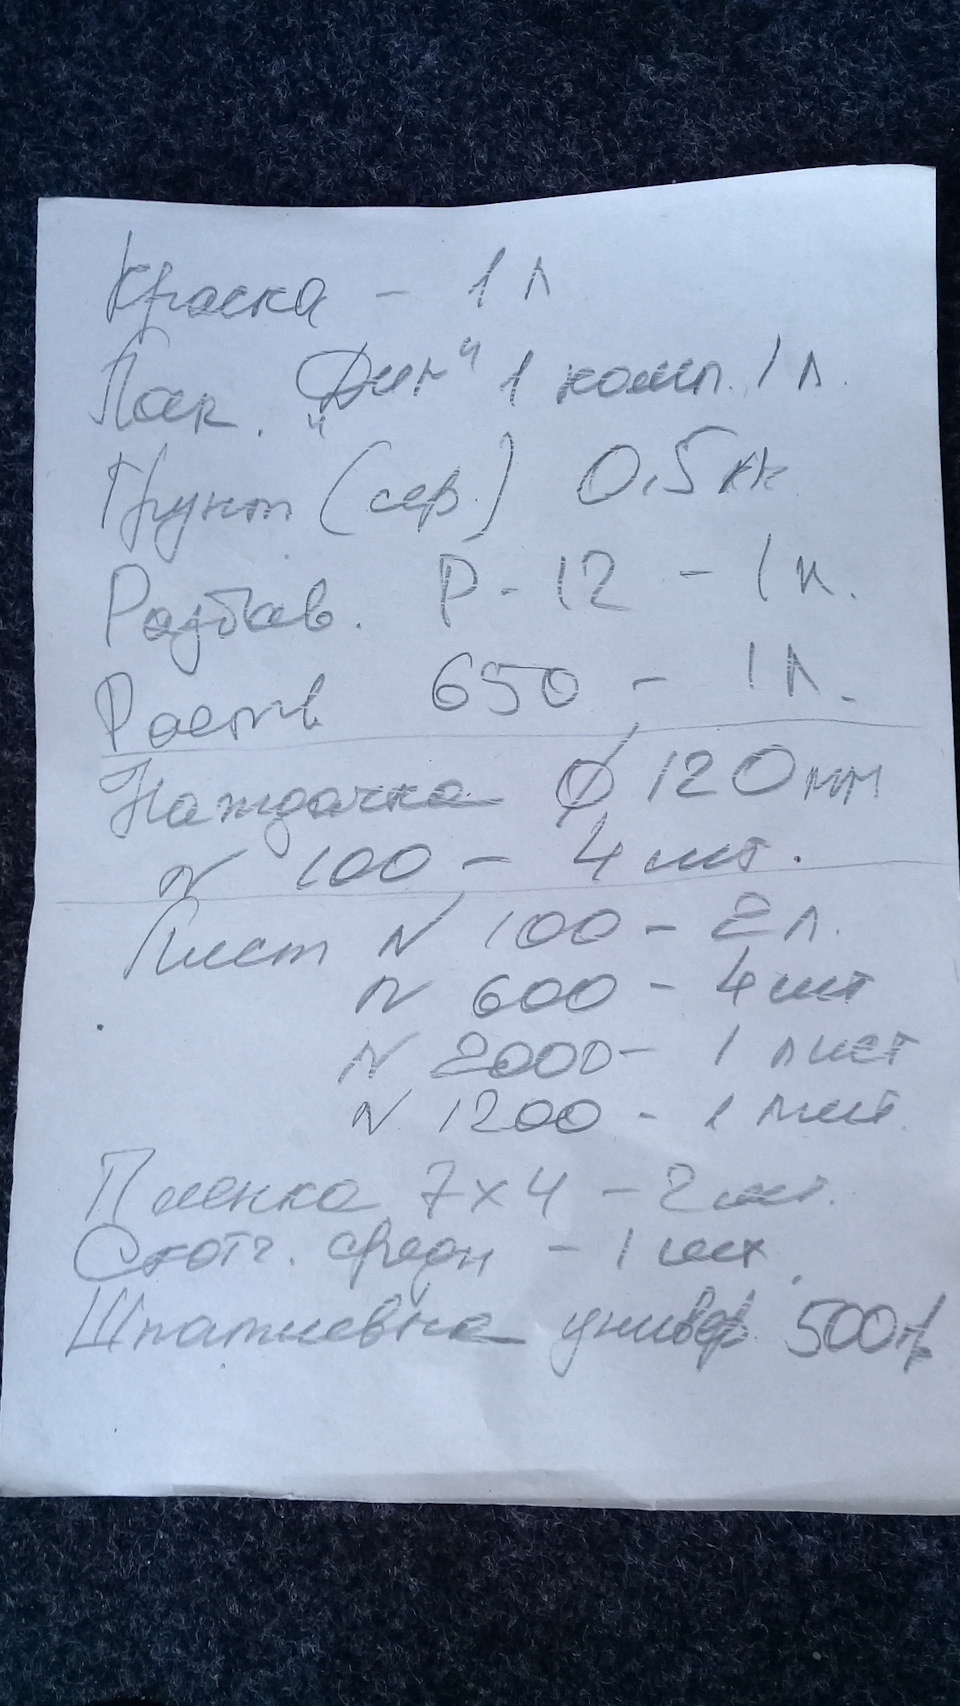 Краска - 1 л
Лак. „Дин“ 1 комп. 1 л.
Грунт (сер.) 0,5
Разбав. Р-12 - 1
Раств 650 - 1 л.
Наждачка Ø 120 мм
N 100 - 4 шт.
Лист N 100 - 2 л.
N 600 - 4 шт
N 2000 - 1 лист
N 1200 - 1 лист
Пленка 7х4 - 2 шт.
Скотч. средн - 1
Шпатлевка универ. 500 гр